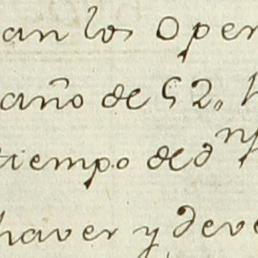 an los oper
año de 52,
tiempo de dⁿ
haver y deve